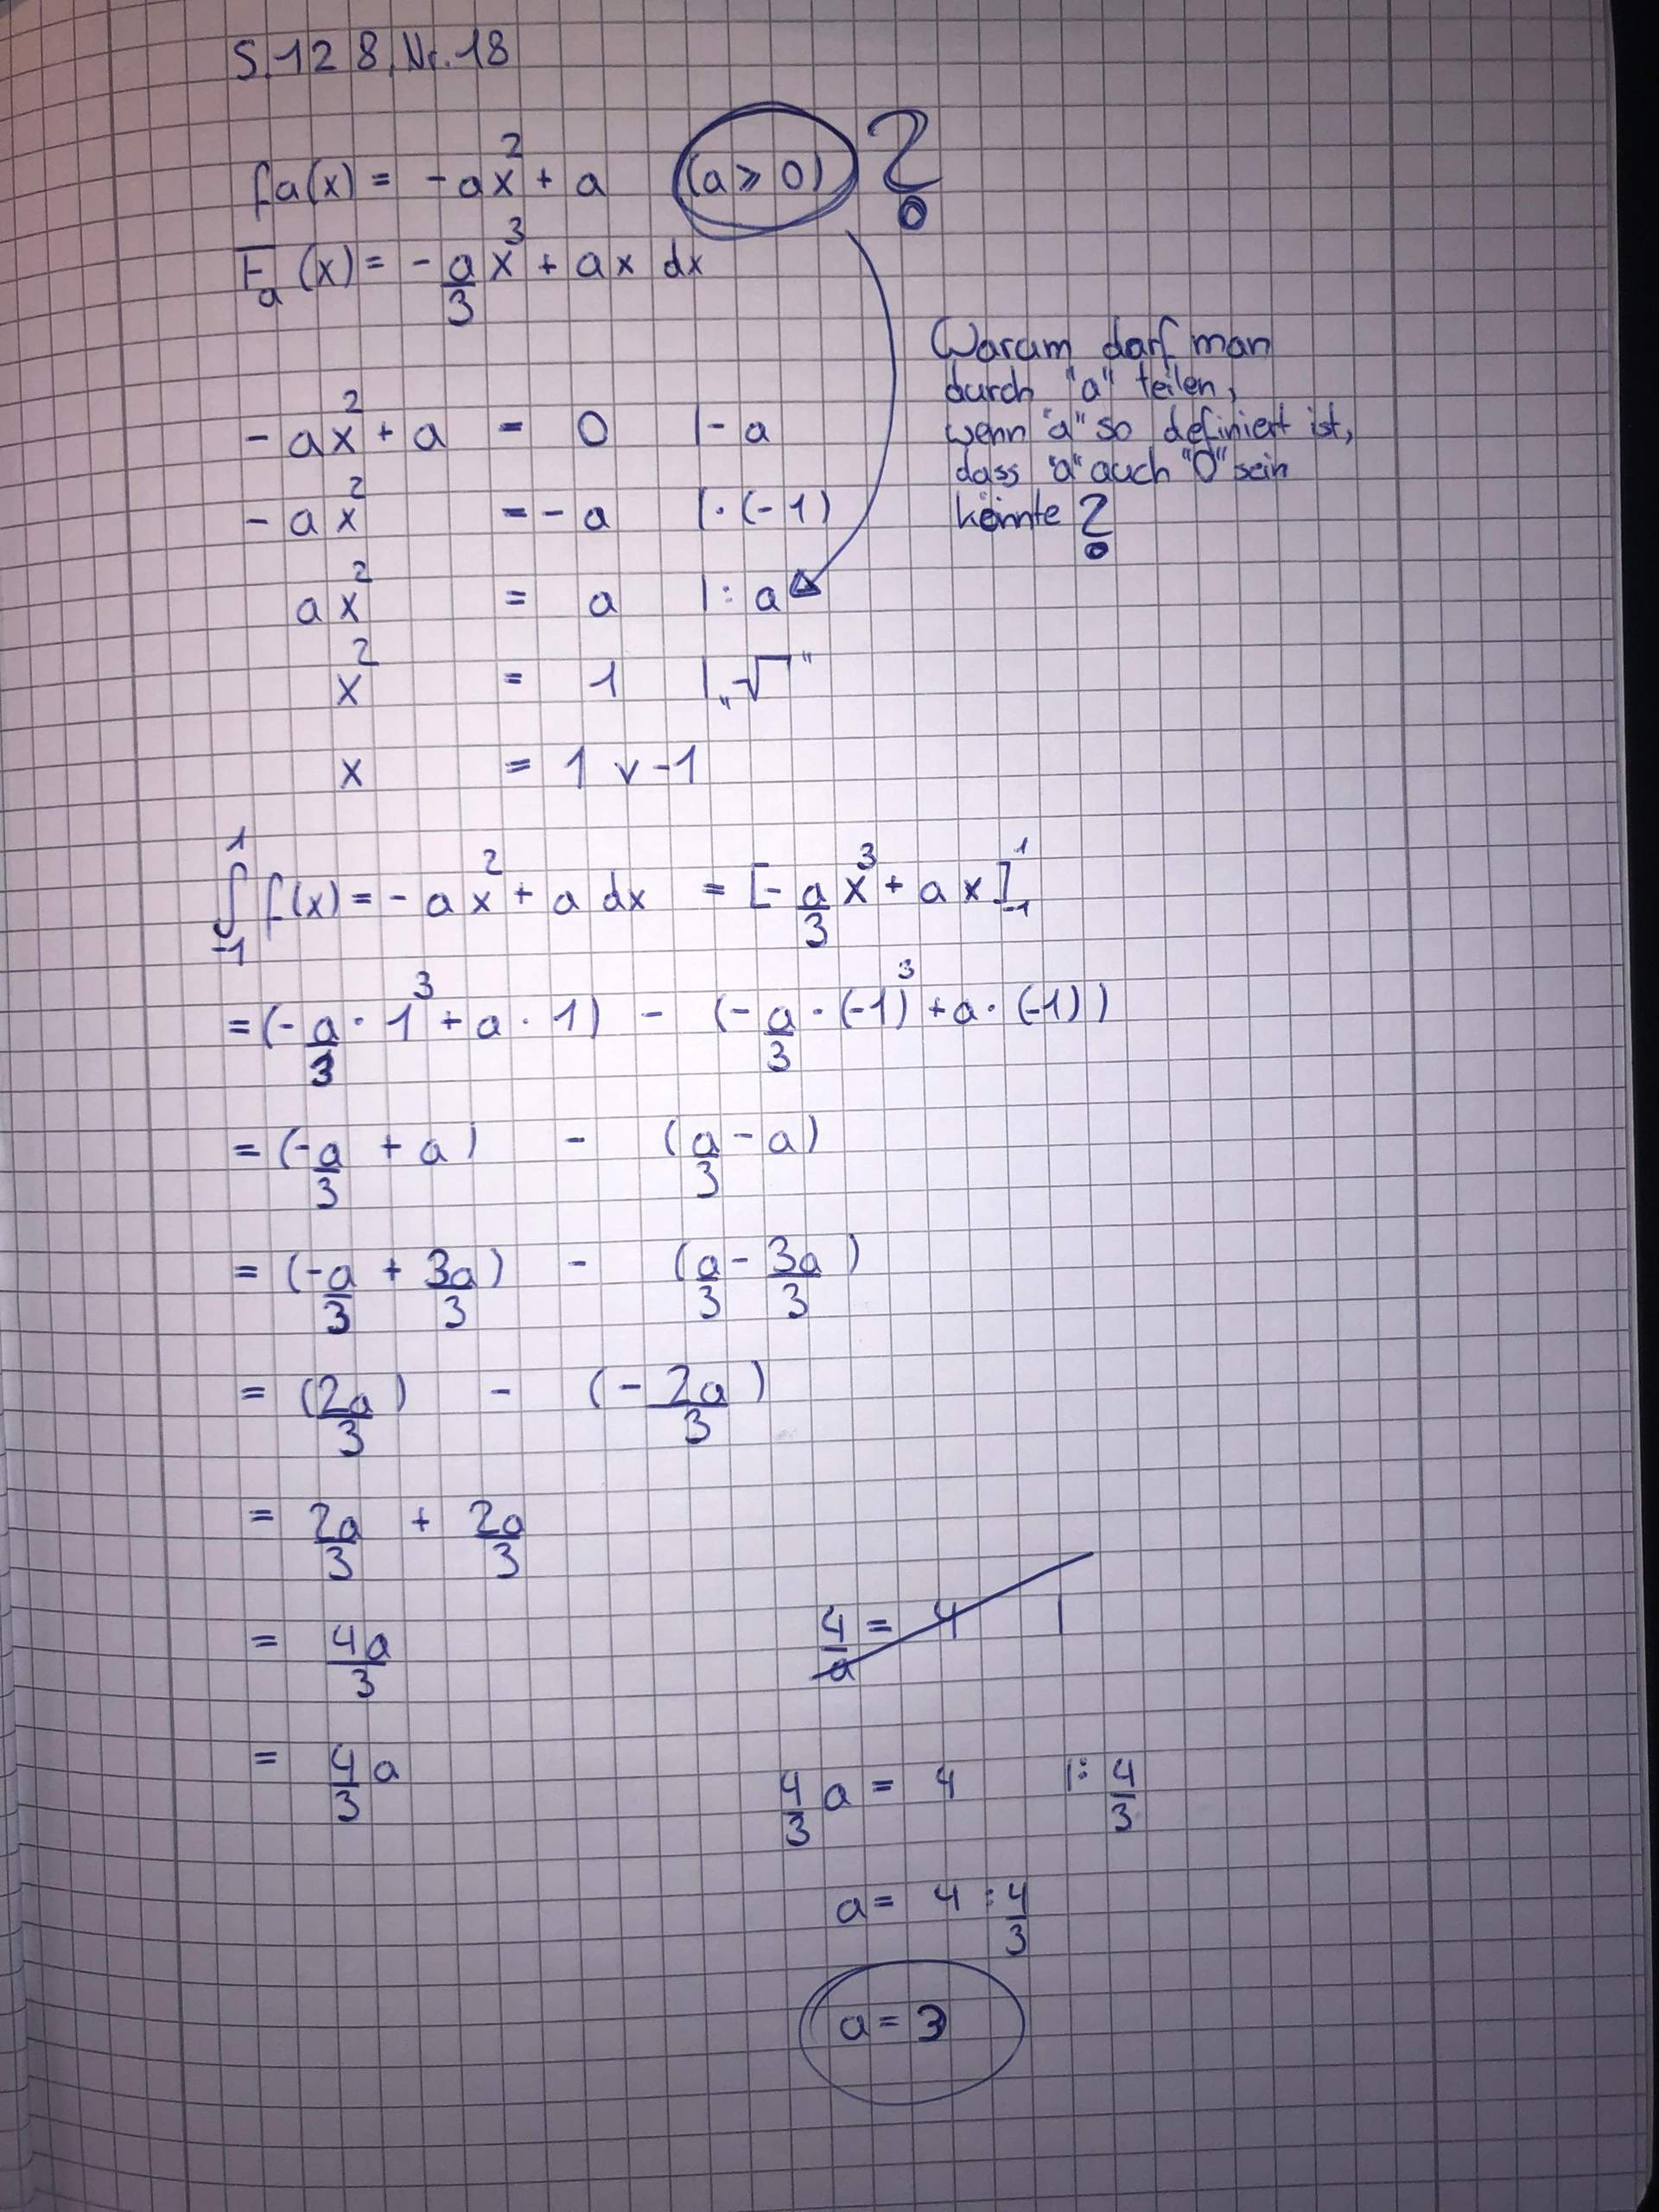 S. 128, Nr. 18
fa(x) = -ax² + a (a ≥ 0) ?
Fₐ(x) = -a/3 x³ + ax dx
Warum darf man
durch "a" teilen,
wenn "a" so definiert ist,
dass "a" auch "0" sein
könnte ?
-ax² + a = 0 |-a
-ax² = -a |·(-1)
ax² = a |: a
x² = 1 |„√"
x = 1 ∨ -1
∫₋₁¹ f(x) = -ax² + a dx = [-a/3 x³ + ax]₋₁¹
= (-a/3 · 1³ + a · 1) - (-a/3 · (-1)³ + a · (-1))
= (-a/3 + a) - (a/3 - a)
= (-a/3 + 3a/3) - (a/3 - 3a/3)
= (2a/3) - (-2a/3)
= 2a/3 + 2a/3
= 4a/3
4/a = 4 |
= 4/3 a
4/3 a = 4 |: 4/3
a = 4 : 4/3
a = 3